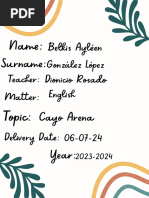 Name: Belkis Ayleen
Surname: González López
Teacher: Dionicio Rosado
Matter: English
Topic: Cayo Arena
Delivery Date: 06-07-24
Year: 2023-2024